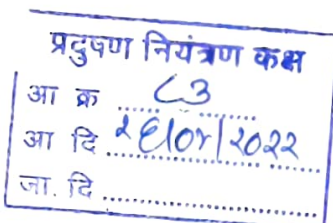 प्रदुषण नियंत्रण कक्ष
आ क्र ८३
आ दि २६/०४/२०२२
जा. दि